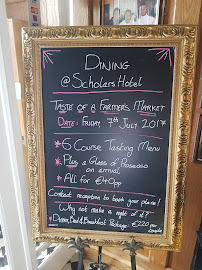 Dining
@ Scholars Hotel
Taste of a Farmers Market
Date: Friday 7th July 2017
*6 Course Tasting Menu
*Plus a Glass of Prosecco
on arrival
*All for €40pp
Contact reception to book your place!
Why not make a night of it?
*Dinner, Bed & Breakfast Package €220 pr